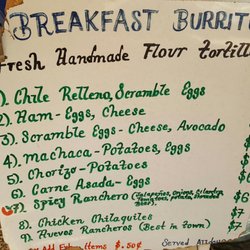 BREAKFAST BURRIT
Fresh Handmade Flour tortill
1). Chile Relleno, Scramble Eggs
2). Ham - Eggs, Cheese
3). Scramble Eggs - Cheese, Avocado
4). Machaca - Potatoes, Eggs
5). Chorizo - Potatoes
6) Carne Asada - Eggs
7). Spicy Ranchero (Jalapeños, onions, Cilantro
8). Chicken Chilaquiles
9). Huevos Rancheros (Best in town)
All Extra Items $.50¢ Served